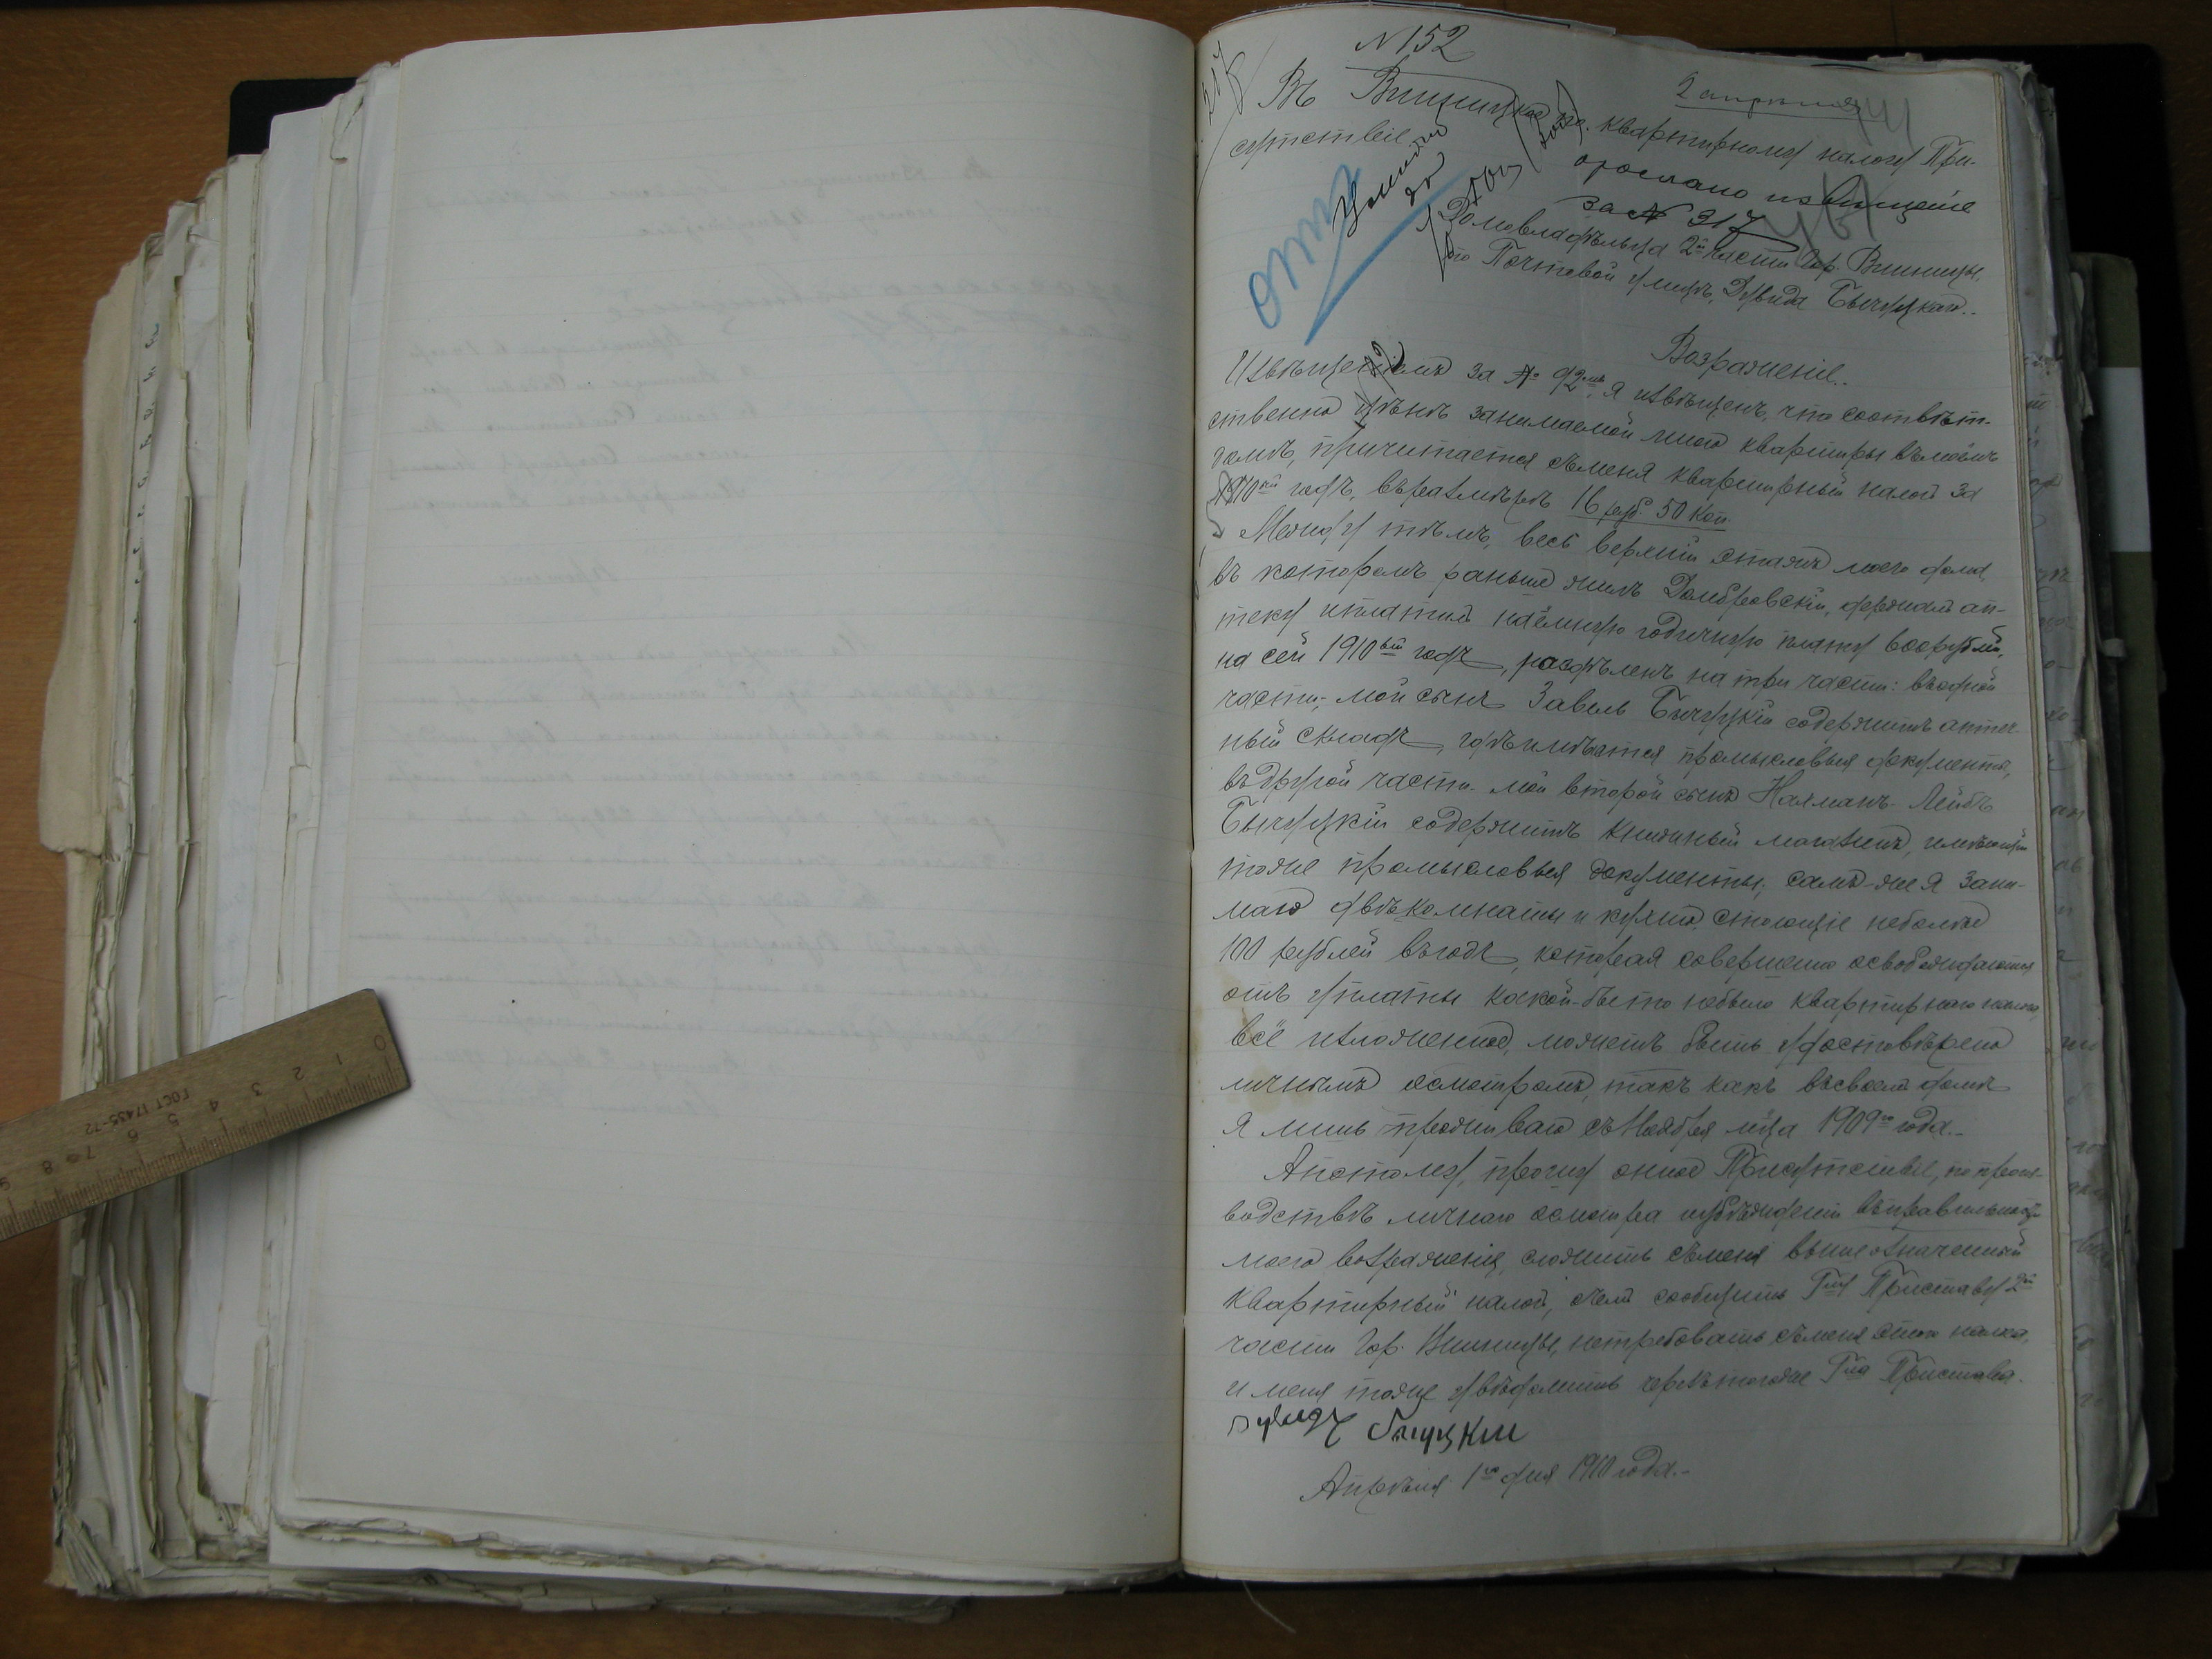 N 152
2 апрѣля
Въ Винницкое по квартирному налогу При-
сутствіе
послано извѣщеніе
за № 317
Домовладѣльца 2й части Гор. Винницы,
по Почтовой улицѣ, Дувида Бычуцкаго.
Возраженіе.
Извѣщеніемъ за № 92мъ, я извѣщенъ, что соотвѣт-
ственно цѣнѣ занимаемой мною квартиры въ моёмъ
домѣ, причитается съ меня квартирный налог за
1910ый годъ, въ размѣрѣ 16 руб. 50 коп.
Между тѣмъ, весь верхній этажъ моего дома,
въ которомъ раньше жилъ Домбровскій, держал ап-
теку и платил наёмную годичную плату рублей,
на сей 1910ый годъ, раздѣленъ на три части: въ одной
части, мой сынъ Завель Бычуцкій содержитъ аптеч-
ный складъ, гдѣ имѣются промысловыя документы,
въ другой части мой второй сынъ Нахманъ-Лейбъ
Бычуцкій содержитъ книжный магазинъ, имѣющій
тоже промысловыя документы, самъ-же я зани-
маю двѣ комнаты и кухню, стоющіе неболѣе
100 рублей въ годъ, которая совершенно освобождаются
отъ уплаты какой-бы то небыло квартирнаго налога,
всё изложенное, можетъ быть удостовѣрено
личнымъ осмотромъ, такъ какъ въ своемъ домѣ
я лишь проживаю съ Ноября мѣца 1909го года.-
А потому, прошу оное Присутствіе, по произ-
водствѣ личнаго осмотра и убѣжденіи въ правильности
моего возраженія, сложить съ меня вышеозначенный
квартирный налог, о чем сообщить Гну Приставу 2й
части Гор. Винницы, нетребовать съ меня этого налога,
и меня тоже увѣдомить через того-же Гна Пристава.
Дувидъ Бычуцкій
Апрѣля 1го дня 1910 года.-
0 1 2 3 4 5 6 7 8 9
ГОСТ 17435-72